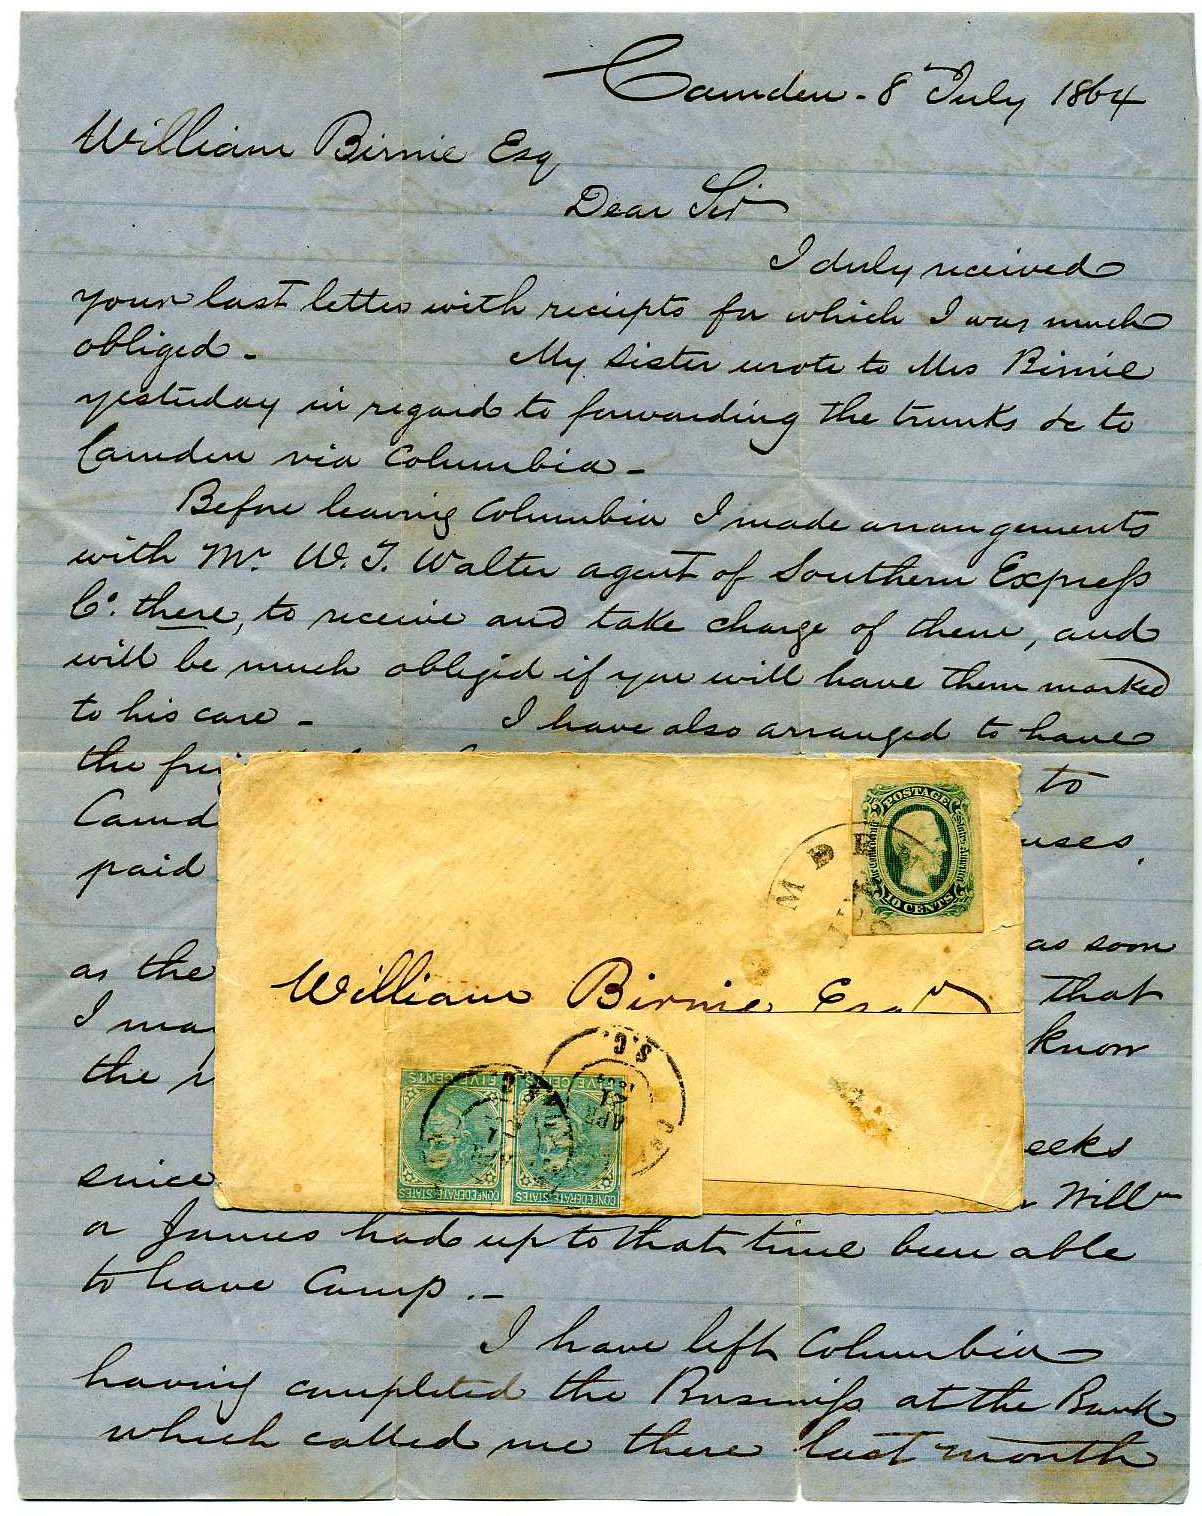 Camden - 8 July 1864
William Birnie Esq
Dear Sir
I duly received
your last letter with reciepts for which I was much
obliged - My sister wrote to Mrs Birnie
yesterday in regard to forwarding the trunks &c to
Camden via Columbia -
Before leaving Columbia I made arrangements
with Mr. W. T. Walter agent of Southern Express
Co. there, to receive and take charge of them, and
will be much obliged if you will have them marked
to his care - I have also arranged to have
the to
Camd
paid
as soon
as the that
I know
the
eeks
since Willm
or James had up to that time been able
to leave Camp. -
I have left Columbia
having completed the Business at the Bank
which called me there last month
POSTAGE
Confederate States America
10 CENTS
MDE
William Birnie Esqr
S.C.
APR
21
FIVE CENTS
FIVE CENTS
CONFEDERATE STATES
CONFEDERATE STATES